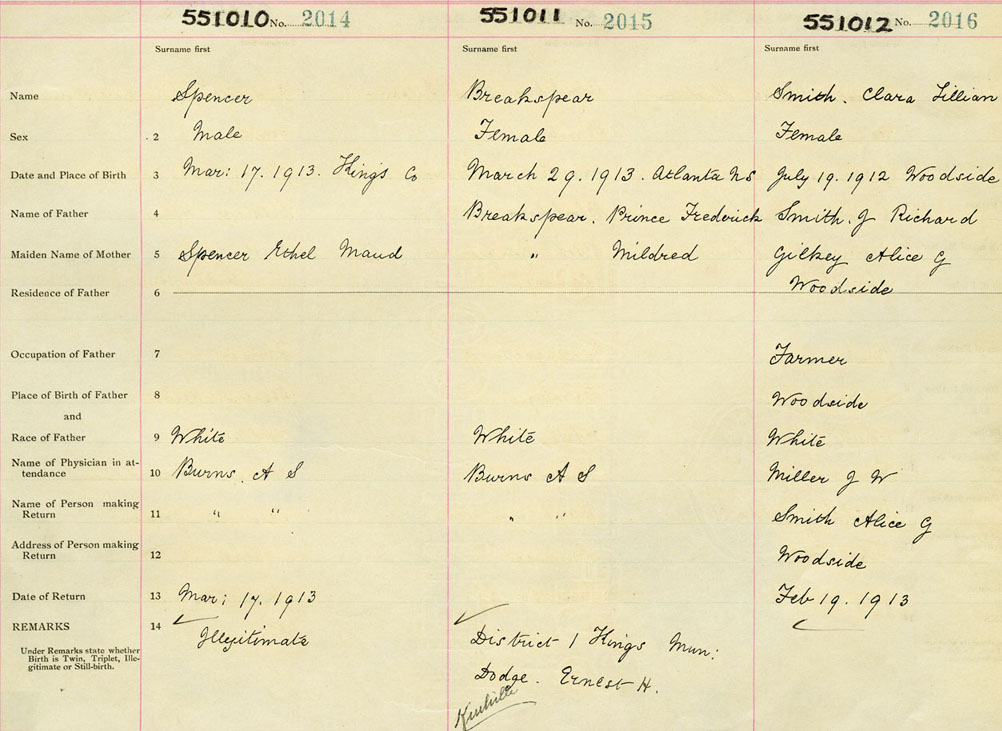 551010 No. 2014 551011 No. 2015 551012 No. 2016
Surname first Surname first Surname first
Name Spencer Breakspear Smith. Clara Lillian
Sex 2 Male Female Female
Date and Place of Birth 3 Mar: 17. 1913. Kings Co March 29. 1913. Atlanta NS July 19. 1912 Woodside
Name of Father 4 Breakspear. Prince Frederick Smith. J Richard
Maiden Name of Mother 5 Spencer Ethel Maud " Mildred Gilkey Alice G
Residence of Father 6 Woodside
Occupation of Father 7 Farmer
Place of Birth of Father 8 Woodside
and
Race of Father 9 White White White
Name of Physician in at-
tendance 10 Burns. A S Burns A S Miller J W
Name of Person making
Return 11 " " " " Smith Alice G
Address of Person making
Return 12 Woodside
Date of Return 13 Mar: 17. 1913 Feb 19. 1913
REMARKS 14 Illegitimate District 1 Kings Mun:
Under Remarks state whether
Birth is Twin, Triplet, Ille-
gitimate or Still-birth.
Dodge. Ernest H.